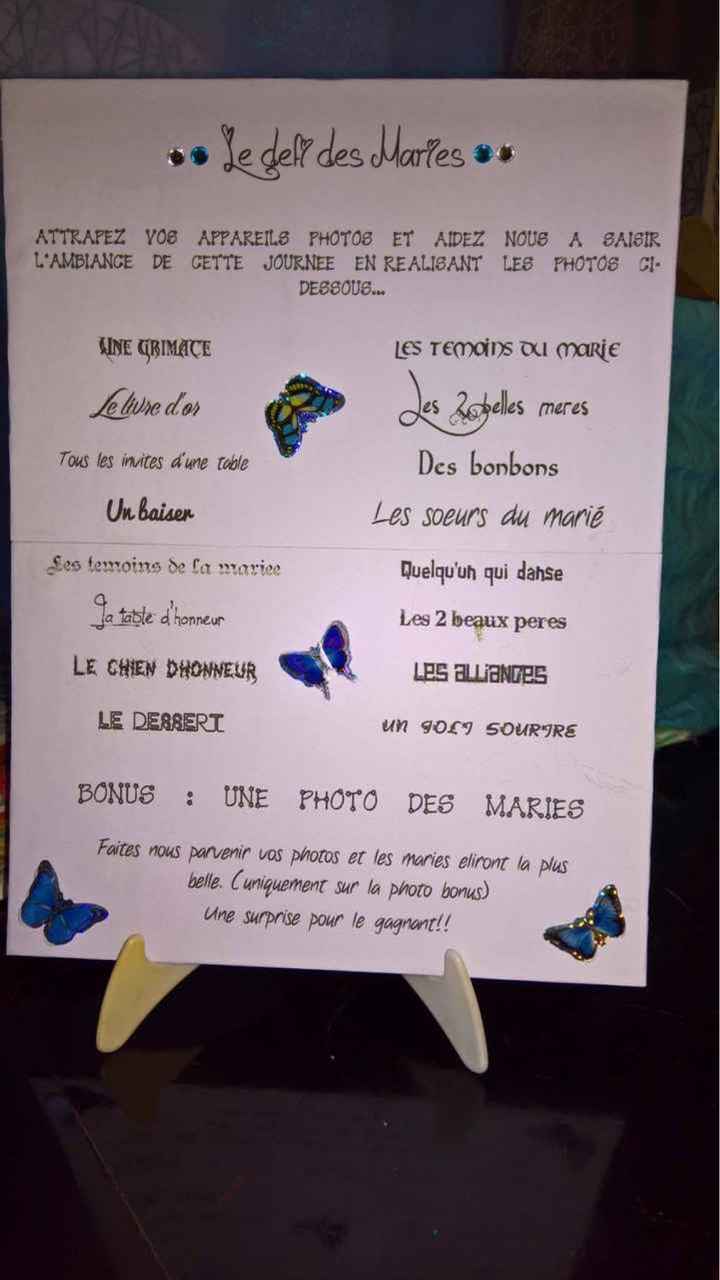 Le defi des Maries
ATTRAPEZ VOS APPAREILS PHOTOS ET AIDEZ NOUS A SAISIR
L'AMBIANCE DE CETTE JOURNEE EN REALISANT LES PHOTOS CI-
DESSOUS...
UNE GRIMACE
LES TEMOINS DU MARIE
Le livre d'or
Les 2 belles meres
Tous les invites d'une table
Des bonbons
Un baiser
Les soeurs du marié
Les temoins de la mariee
Quelqu'un qui danse
La table d'honneur
Les 2 beaux peres
LE CHIEN DHONNEUR
LES ALLIANCES
LE DESSERT
UN JOLI SOURIRE
BONUS : UNE PHOTO DES MARIES
Faites nous parvenir vos photos et les maries eliront la plus
belle. (uniquement sur la photo bonus)
Une surprise pour le gagnant!!